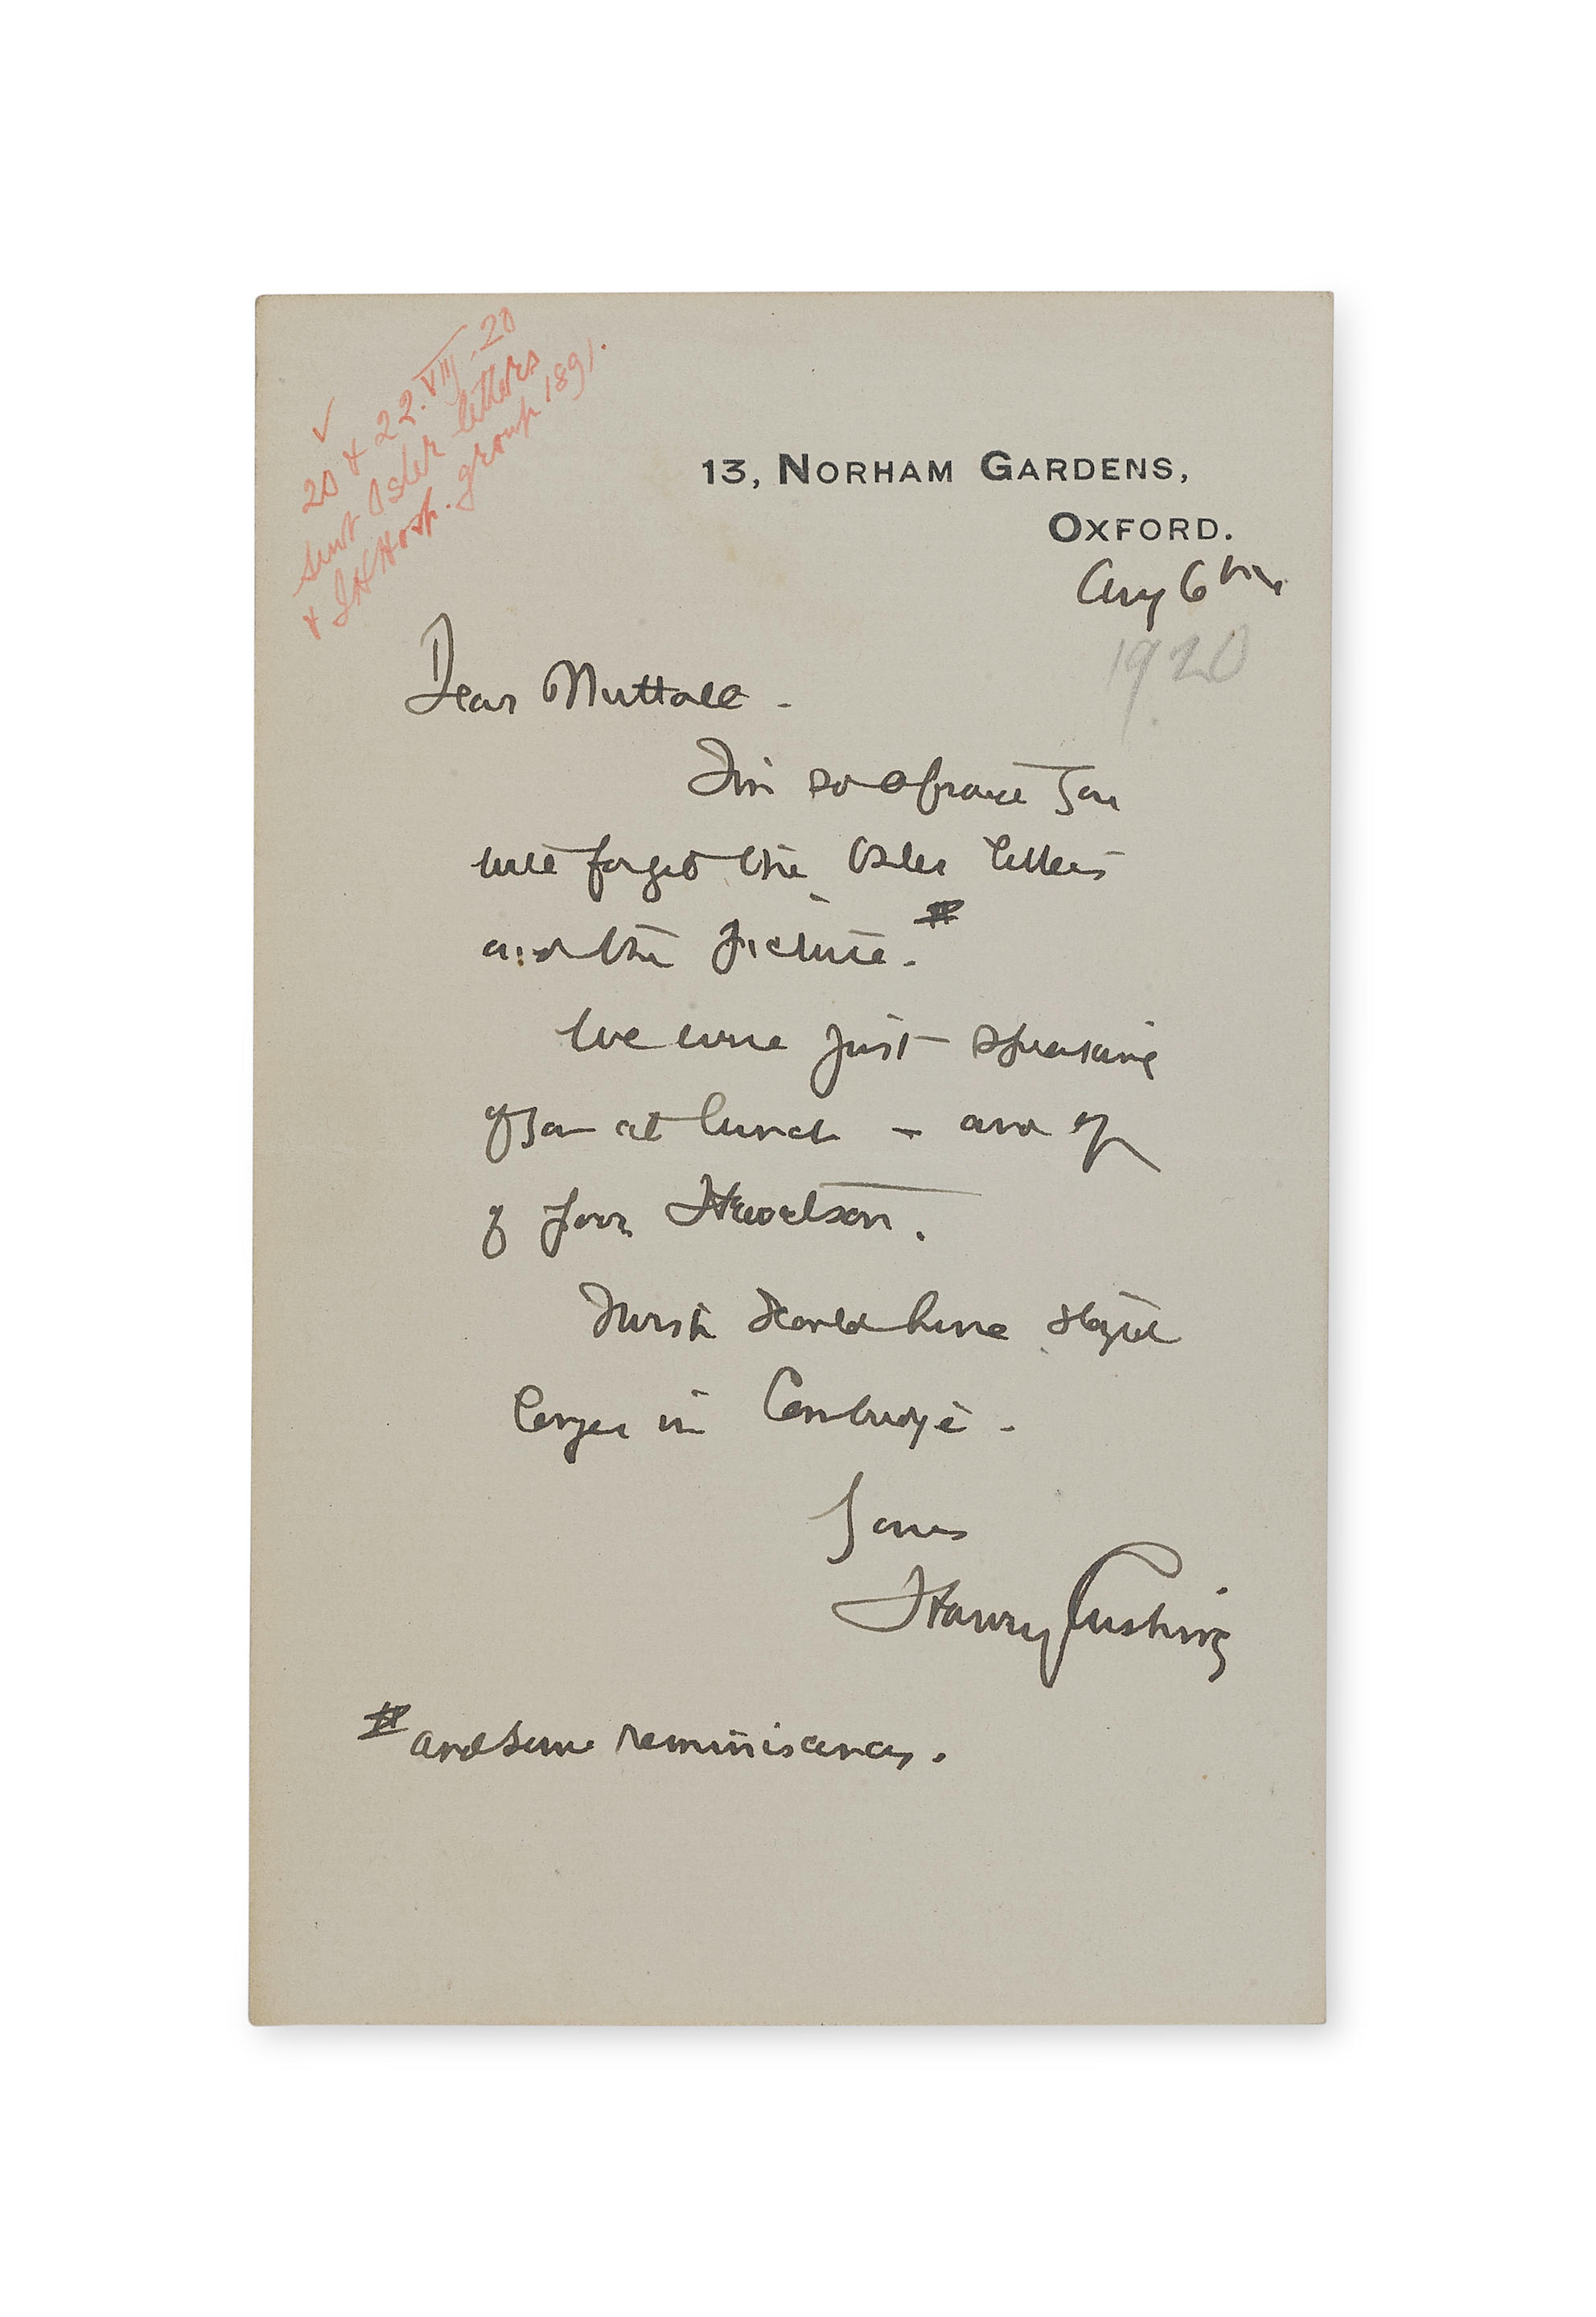 ✓
20 & 22.VIII.20
sent Osler letters
& JHHosp. group 1891.
13, NORHAM GARDENS,
OXFORD.
Aug 6th
1920
Dear Nuttall -
I'm so afraid you
will forget the Osler letters
and the picture.#
We were just speaking
of you at lunch - and of
of poor Hewetson.
I wish I could have stayed
longer in Cambridge -
Yours
Harvey Cushing
# and some reminiscences.